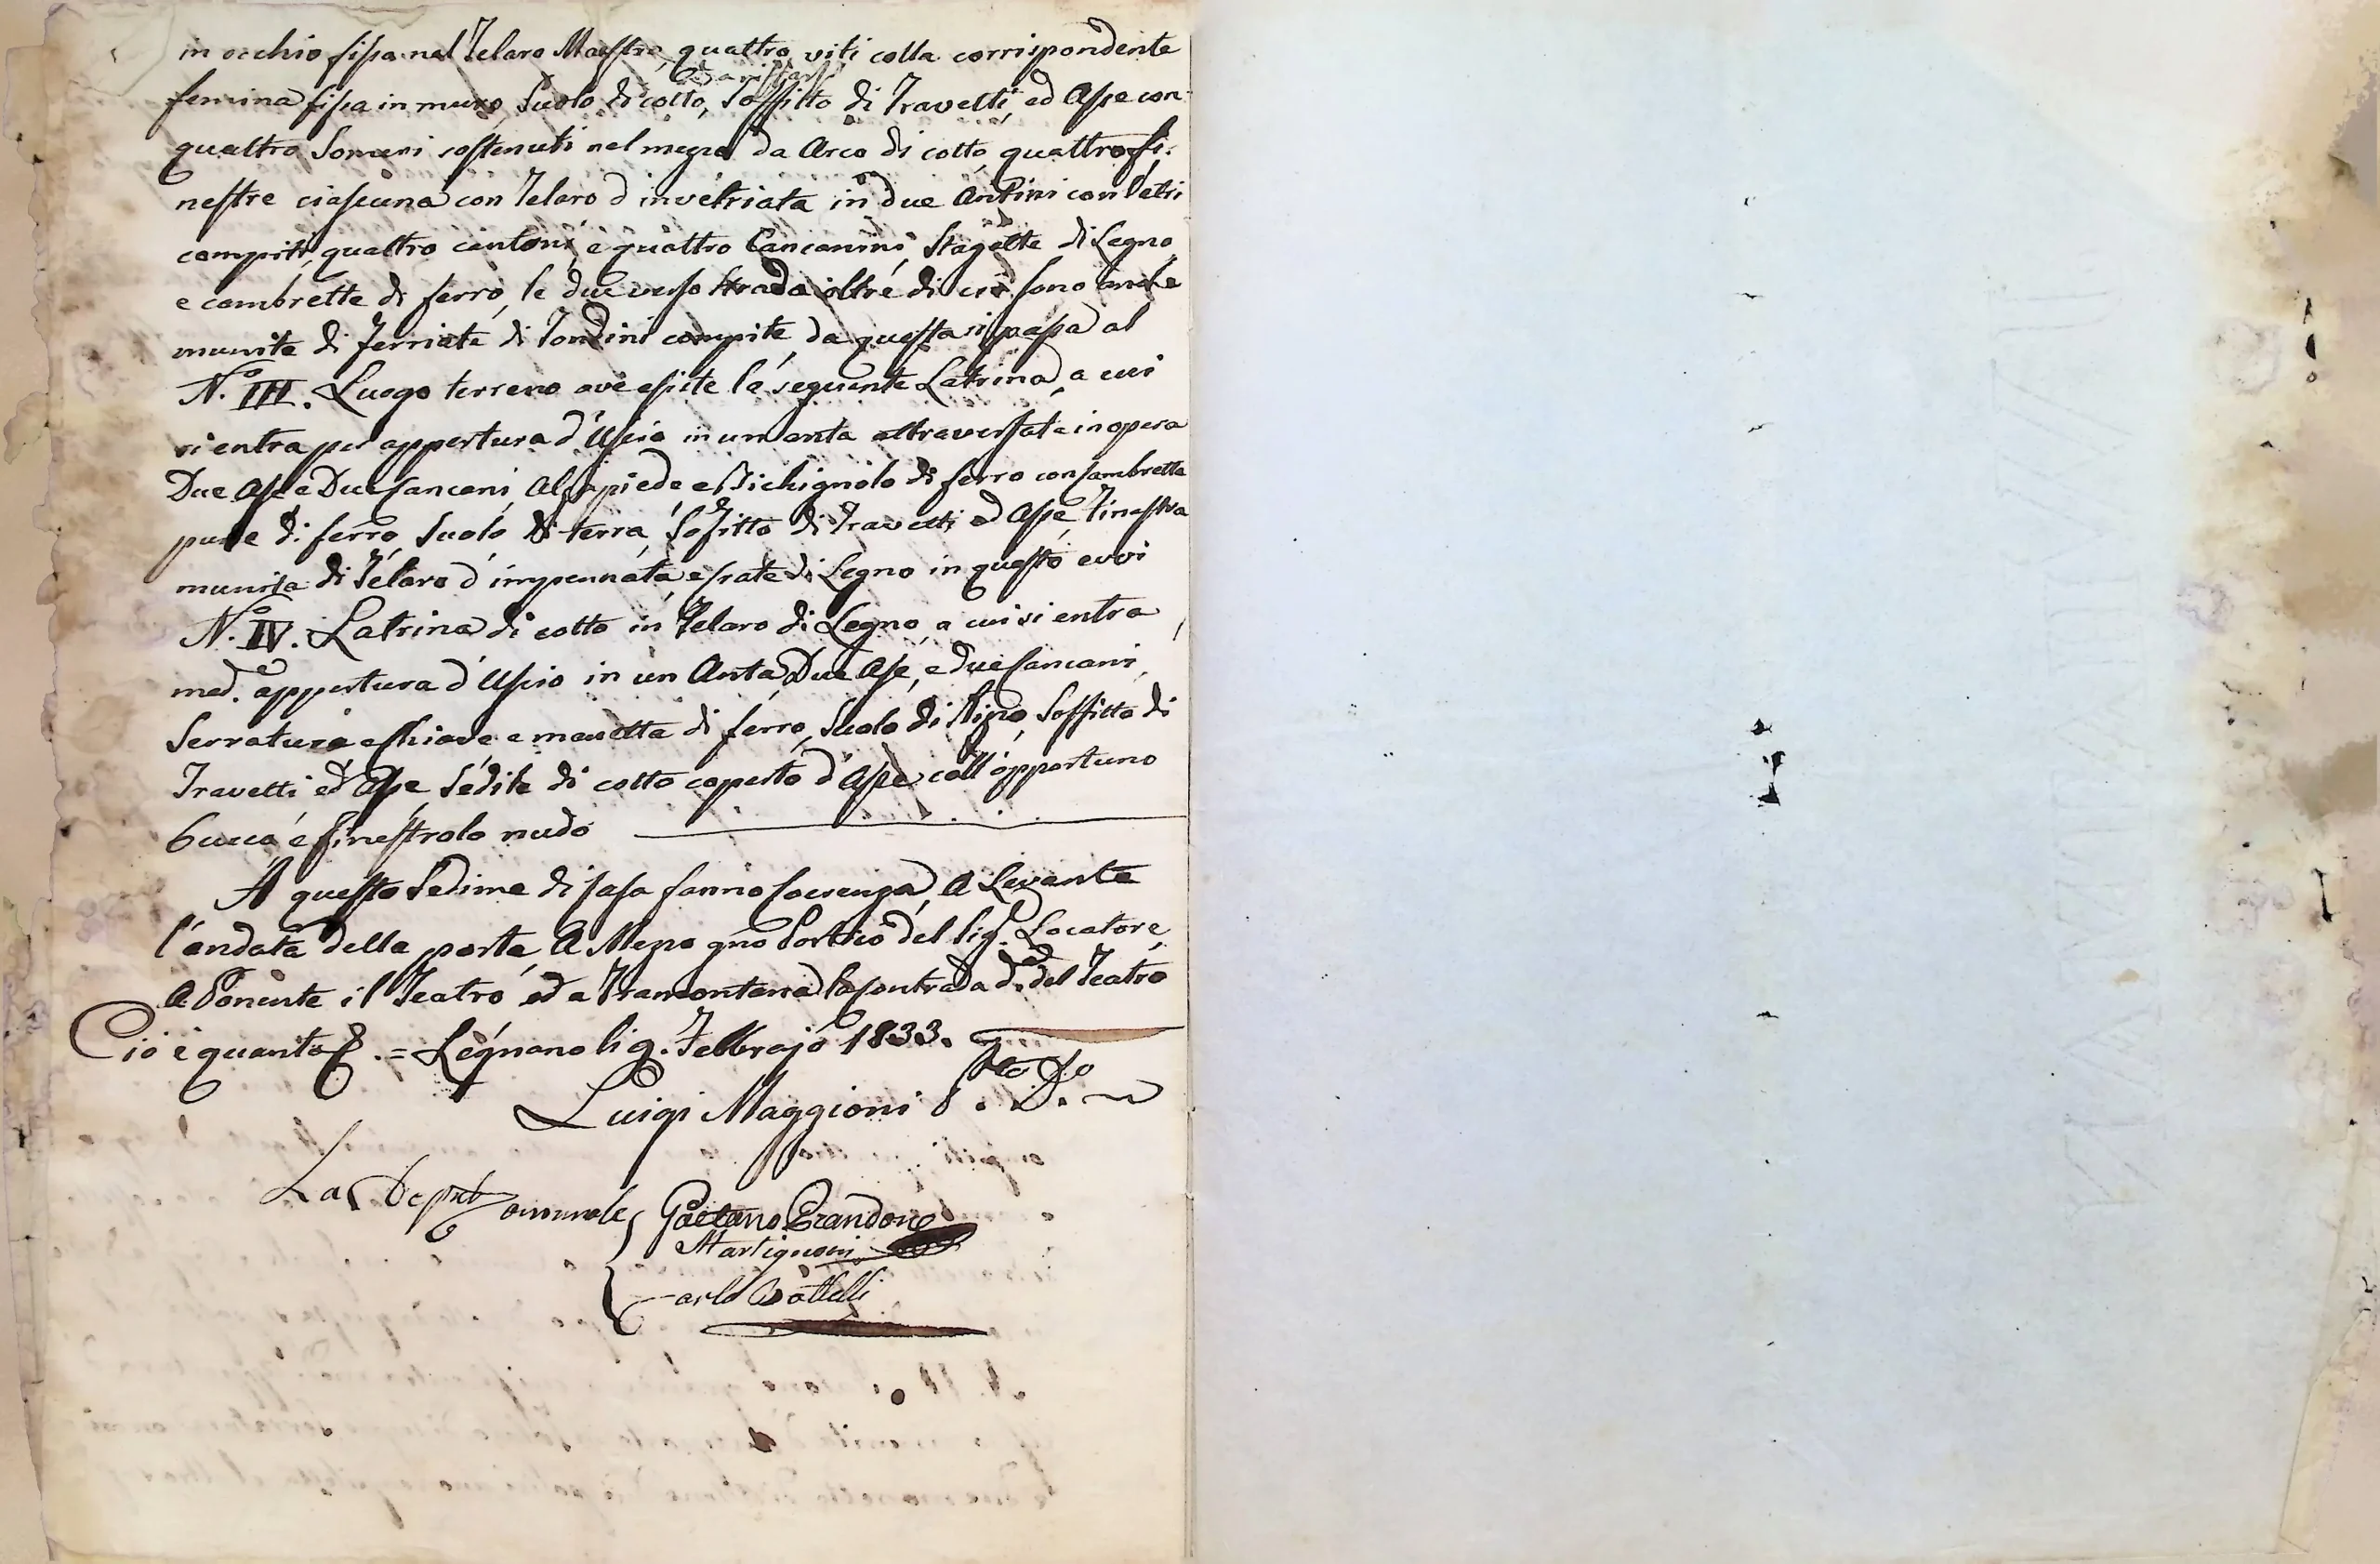 in occhio fissa nel Telaro Maestro, quattro viti colla corrispondente
ad aristare
femina fissa in muro, Suolo di cotto, Soffitto di Travetti, ed Asse con
quattro Someri sostenuti nel mezzo da Arco di cotto, quattro fi-
nestre ciascuna con Telaro d'invetriata in due Antini con Vetri
compiti, quattro cantoni, e quattro Cancanini, Stagette di Legno,
e cambrette di ferro, le due verso Strada oltre di ciò sono anche
munite di ferriate di Tondini compite, da questa si passa al
N.º III. Luogo terreno ove esiste la seguente Latrina, a cui
si entra per appertura d'Uscio in un anta attraversata in opera
Due Asse e Due Cancani, Alsapiede e Bichignolo di ferro con Cambretta
pure di ferro, Suolo di terra, Soffitto di Travetti ed Asse, Finestra
munita di Telaro d'impennata, e Crate di Legno in questo evvi
N.º IV. Latrina di cotto in Telaro di Legno, a cui si entra
med.e appertura d'Uscio in un Anta, Due Asse, e due Cancani,
Serratura e Chiave e manetta di ferro, Suolo di Rizzo, Soffitto di
Travetti ed Asse, Sedile di cotto coperto d'Asse coll'opportuno
bucco e finestrolo nudo
A questo Sedime di Casa fanno Coerenza, A Levante
l'andata della porta, A Mezzo gno Portico del Sig.r Locatore,
A Ponente il Teatro ed a Tramontana la Contrada d.a del Teatro
Ciò è quanto &. = Legnano li 9. Febbrajo 1833.
Luigi Maggioni
La Deput Comunale
Gaetano Brandone
Martignoni
Carlo Bottelli